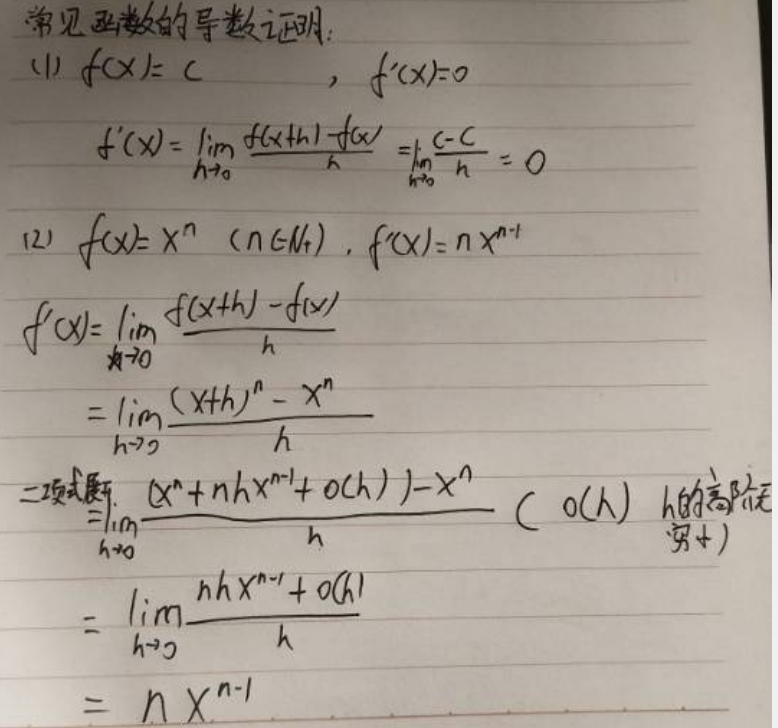 常见函数的导数证明:
(1) f(x)= C , f'(x)=0
f'(x)= lim_{h→0} \frac{f(x+h)-f(x)}{h} = lim_{h→0} \frac{C-C}{h} = 0
(2) f(x)= x^n (n∈N₊) , f'(x)= n x^{n-1}
f'(x)= lim_{h→0} \frac{f(x+h)-f(x)}{h}
= lim_{h→0} \frac{(x+h)^n - x^n}{h}
二项式展开 = lim_{h→0} \frac{(x^n+nhx^{n-1}+o(h))-x^n}{h} ( o(h) h的高阶无穷小)
= lim_{h→0} \frac{nhx^{n-1}+o(h)}{h}
= n x^{n-1}